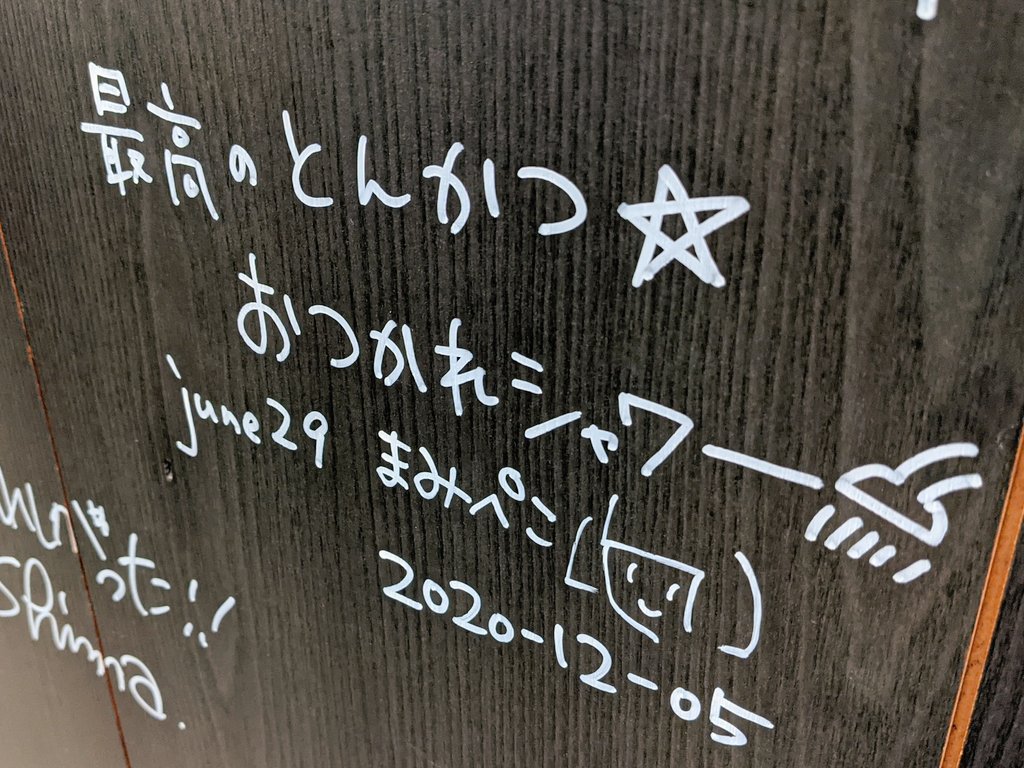 最高のとんかつ☆
おつかれニシャワー
june29
まみぺこ
2020-12-05
った!!
Shima.